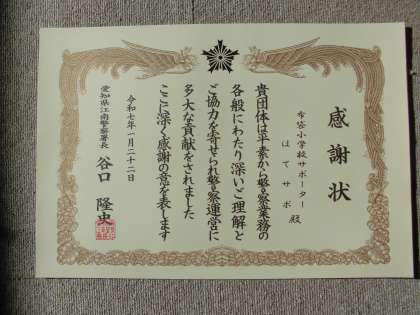 感謝状
布袋小学校サポーター
ほてサポ 殿
貴団体は平素から警察業務の
各般にわたり深いご理解と
ご協力を寄せられ警察運営に
多大な貢献をされました
ここに深く感謝の意を表します
令和七年一月二十二日
愛知県江南警察署長 谷口 隆史